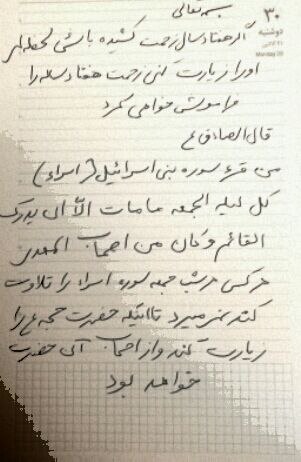 بسمه تعالی
۳۰
دوشنبه
Monday 20
اگر هفتاد سال زحمت کشیده باشی لحظه‌ای
او را زیارت کنی زحمت هفتاد ساله را
فراموش خواهی کرد
قال الصادق ع
من قرء سوره بنی اسرائیل (اسراء)
کل لیله الجمعه ما مات الا ان یدرک
القائم و کان من اصحاب المهدی
هر کس هر شب جمعه سوره اسراء را تلاوت
کند نمی‌میرد تا اینکه حضرت حجه ع را
زیارت کند و از اصحاب آن حضرت
خواهد بود